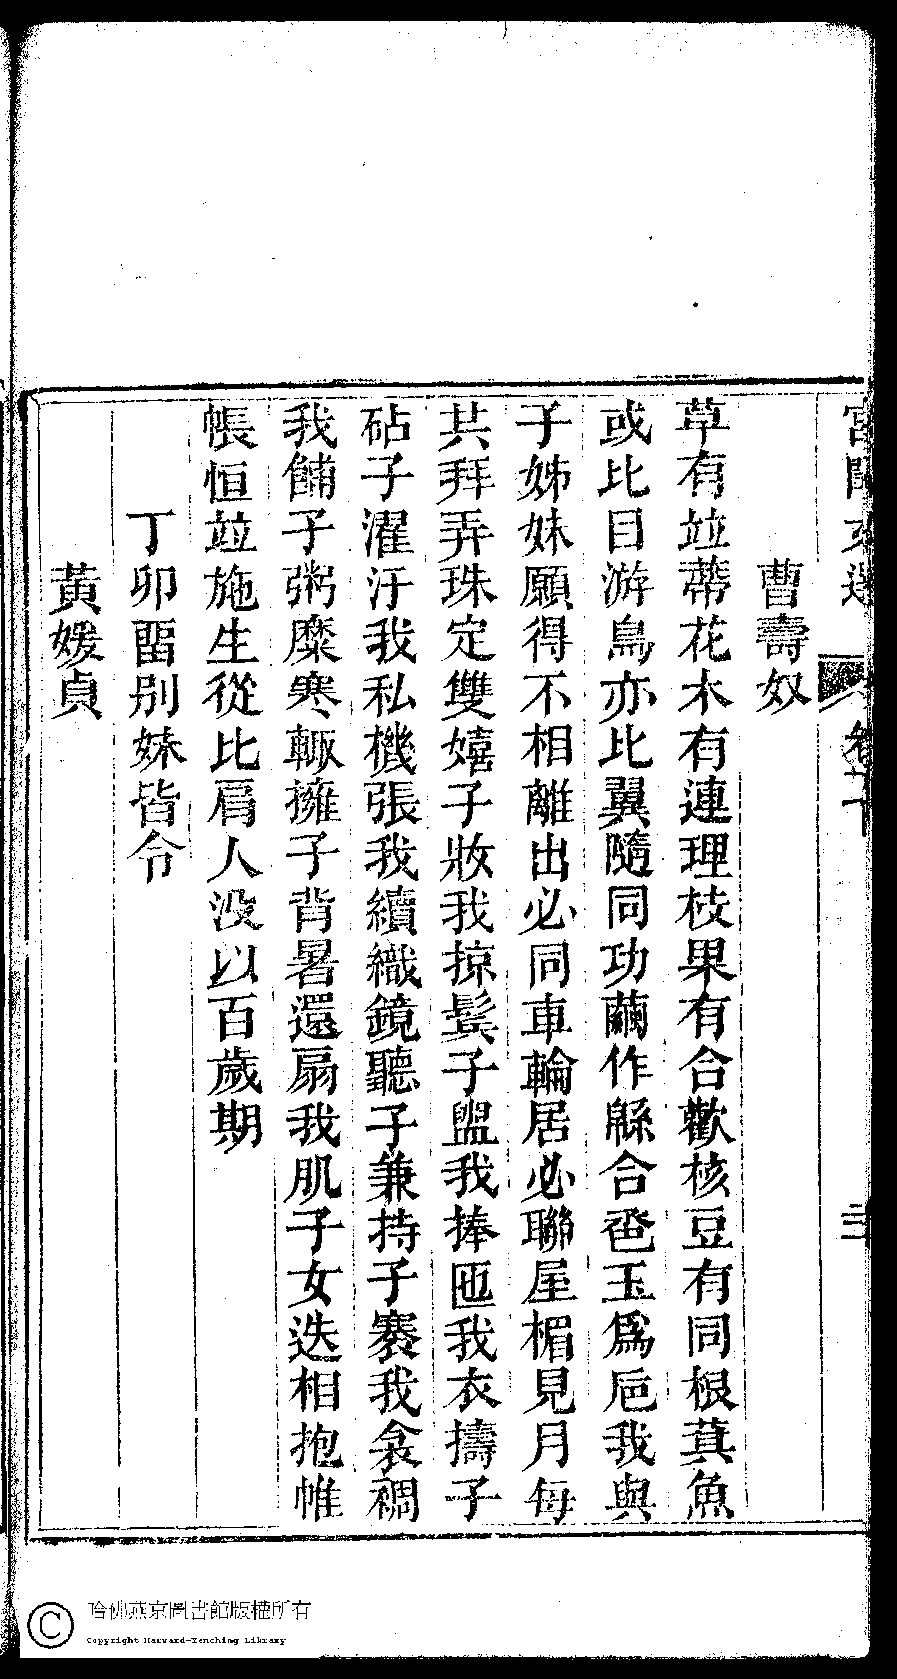 宮閨文選 卷十 三
曹壽奴
草有竝蒂花木有連理枝果有合歡核豆有同根萁魚
或比目游鳥亦比翼隨同功繭作緜合巹玉爲卮我與
子姊妹願得不相離出必同車輪居必聯屋楣見月每
共拜弄珠定雙嬉子妝我掠鬂子盥我捧匜我衣擣子
砧子濯汙我私機張我續織鏡聽子兼持子褰我衾裯
我餔子粥糜寒輙擁子背暑還扇我肌子女迭相抱帷
帳恒竝施生從比肩人没以百歲期
丁卯畱别妹皆令
黃媛貞
哈佛燕京圖書館版權所有
Copyright Harvard-Yenching Library